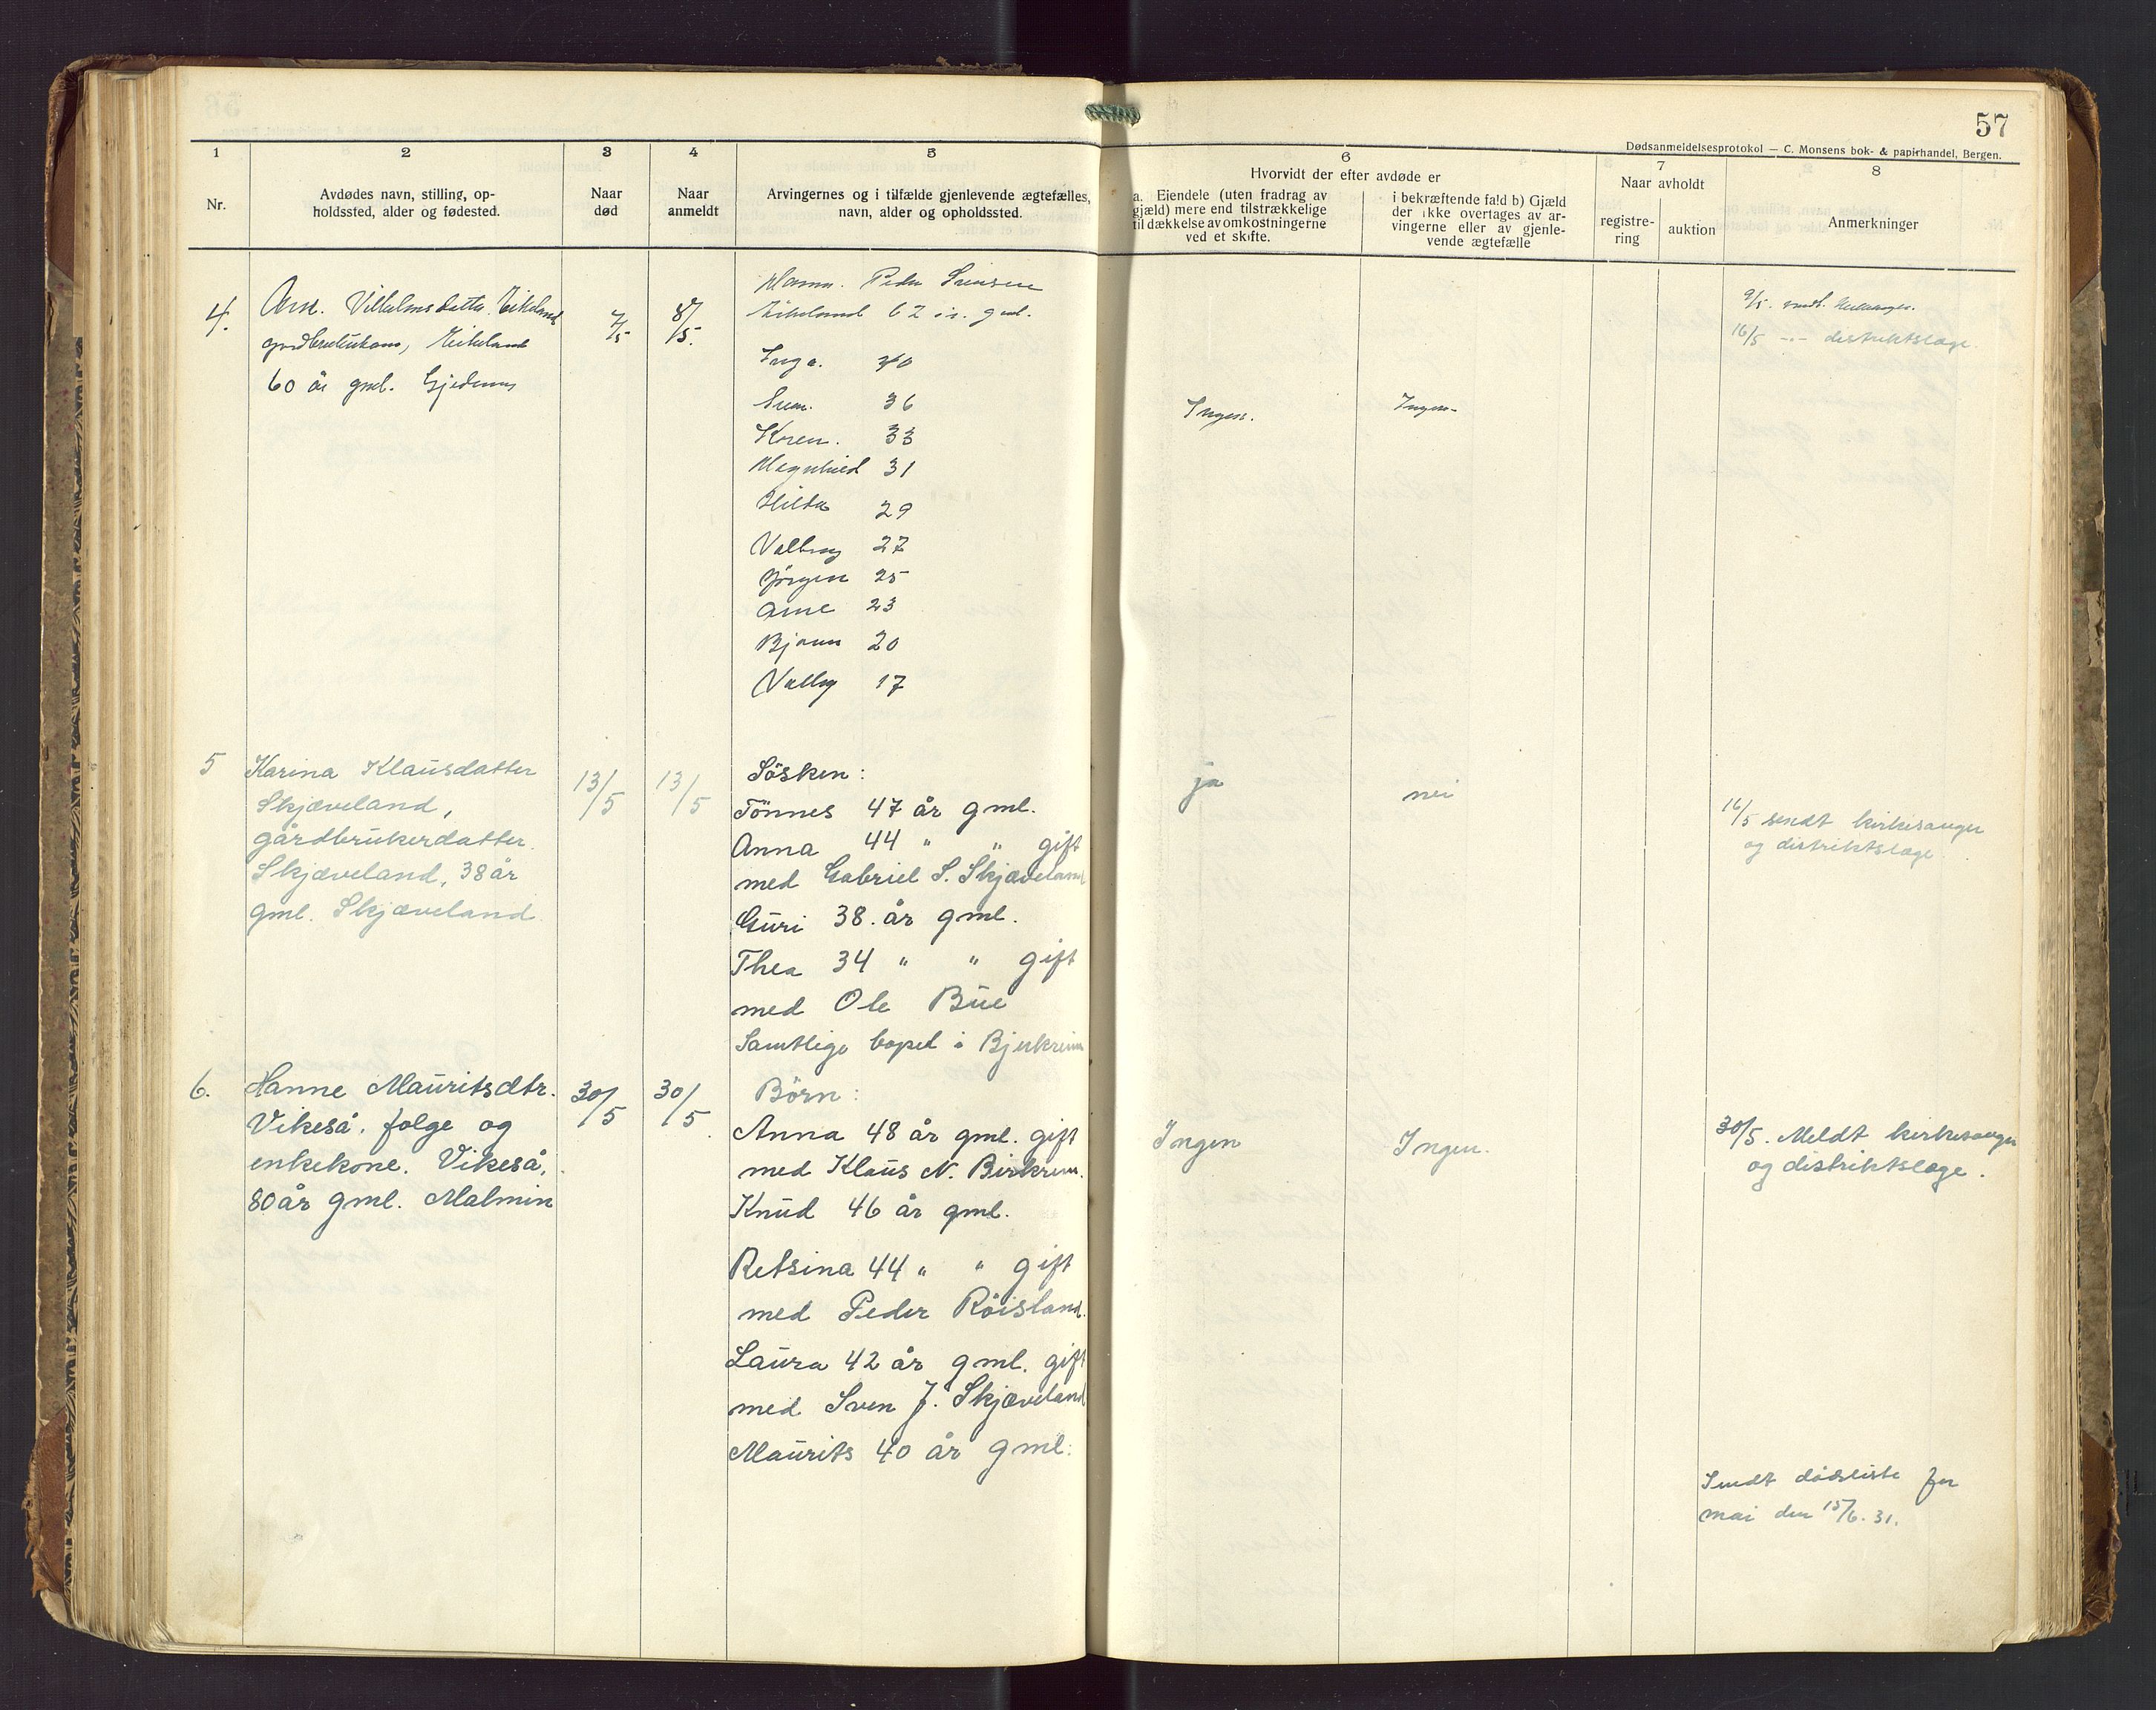 57
Dødsanmeldelsesprotokol — C. Monsens bok- & papirhandel, Bergen.
1
Nr.
2
Avdødes navn, stilling, op-
holdssted, alder og fødested.
3
Naar
død
4
Naar
anmeldt
5
Arvingernes og i tilfælde gjenlevende ægtefælles,
navn, alder og opholdssted.
6
Hvorvidt der efter avdøde er
a. Eiendele (uten fradrag av
gjæld) mere end tilstrækkelige
til dækkelse av omkostningerne
ved et skifte.
i bekræftende fald b) Gjæld
der ikke overtages av ar-
vingerne eller av gjenle-
vende ægtefælle
7
Naar avholdt
registre-
ring
auktion
8
Anmerkninger
4.
Vilhelmsdatter Eikeland
Eikeland
60 år gml. Gjedrem
7/5
8/5.
Peder
Eikeland 62 år gml.
Inga. 40
Sven. 36
Karen. 33
Magnhild 31
Hilda 29
Valborg 27
Jørgen 25
Arne 23
Bjarne 20
17
Ingen.
Ingen.
9/5. sendt
16/5 -"- distriktslæge.
5
Karina Klausdatter
Skjæveland,
gårdbrukerdatter.
Skjæveland, 38 år
gml. Skjæveland.
13/5
13/5
Søsken:
Tönnes 47 år gml.
Anna 44 " " gift
med Gabriel S. Skjæveland
Guri 38. år gml.
Thea 34 " " gift
med Ole Bue
Samtlige bopel i Bjerkreim
ja
nei
16/5 sendt kirkesanger
og distriktslæge.
6.
Hanne Mauritsdtr.
Vikeså. folge og
enkekone. Vikeså.
80 år gml. Malmin
30/5
30/5
Börn:
Anna 48 år gml. gift
med Klaus N. Birkrem.
Knud 46 år gml.
Retsina 44 " " gift
med Peder Röisland.
Laura 42 år gml. gift
med Sven J. Skjæveland
Maurits 40 år gml.
Ingen
Ingen.
30/5. Meldt kirkesanger
og distriktslæge.
Sendt dödsliste for
mai den 15/6. 31.